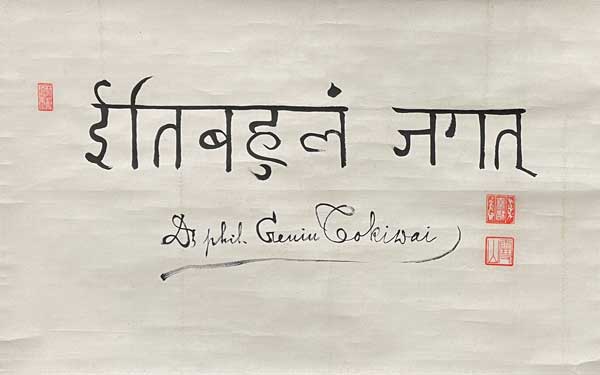 ईतिबहुलं जगत्
Dr phil. Geniu Tokiwai